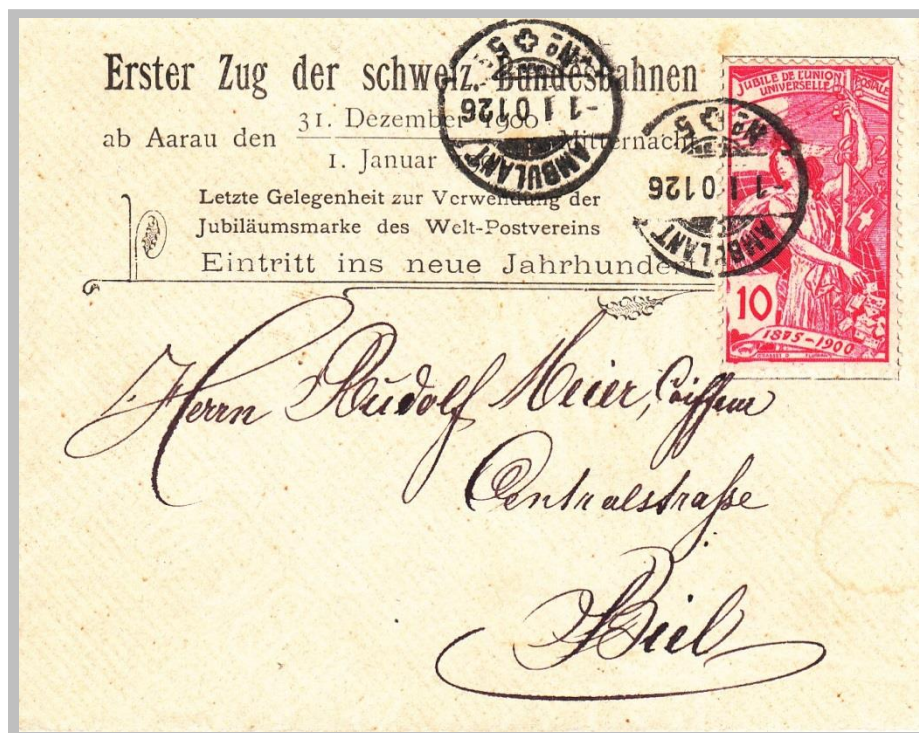 Erster Zug der schweiz. Bundesbahnen
ab Aarau den 31. Dezember 1900 Mitternacht
1. Januar
Letzte Gelegenheit zur Verwendung der
Jubiläumsmarke des Welt-Postvereins
Eintritt ins neue Jahrhundert
AMBULANT
-1 I 01 26
No 5
AMBULANT
-1 I 01 26
No 5
JUBILÉ DE L'UNION POSTALE
UNIVERSELLE
10
1875-1900
Herrn Rudolf Meier, Coiffeur
Centralstraße
Biel